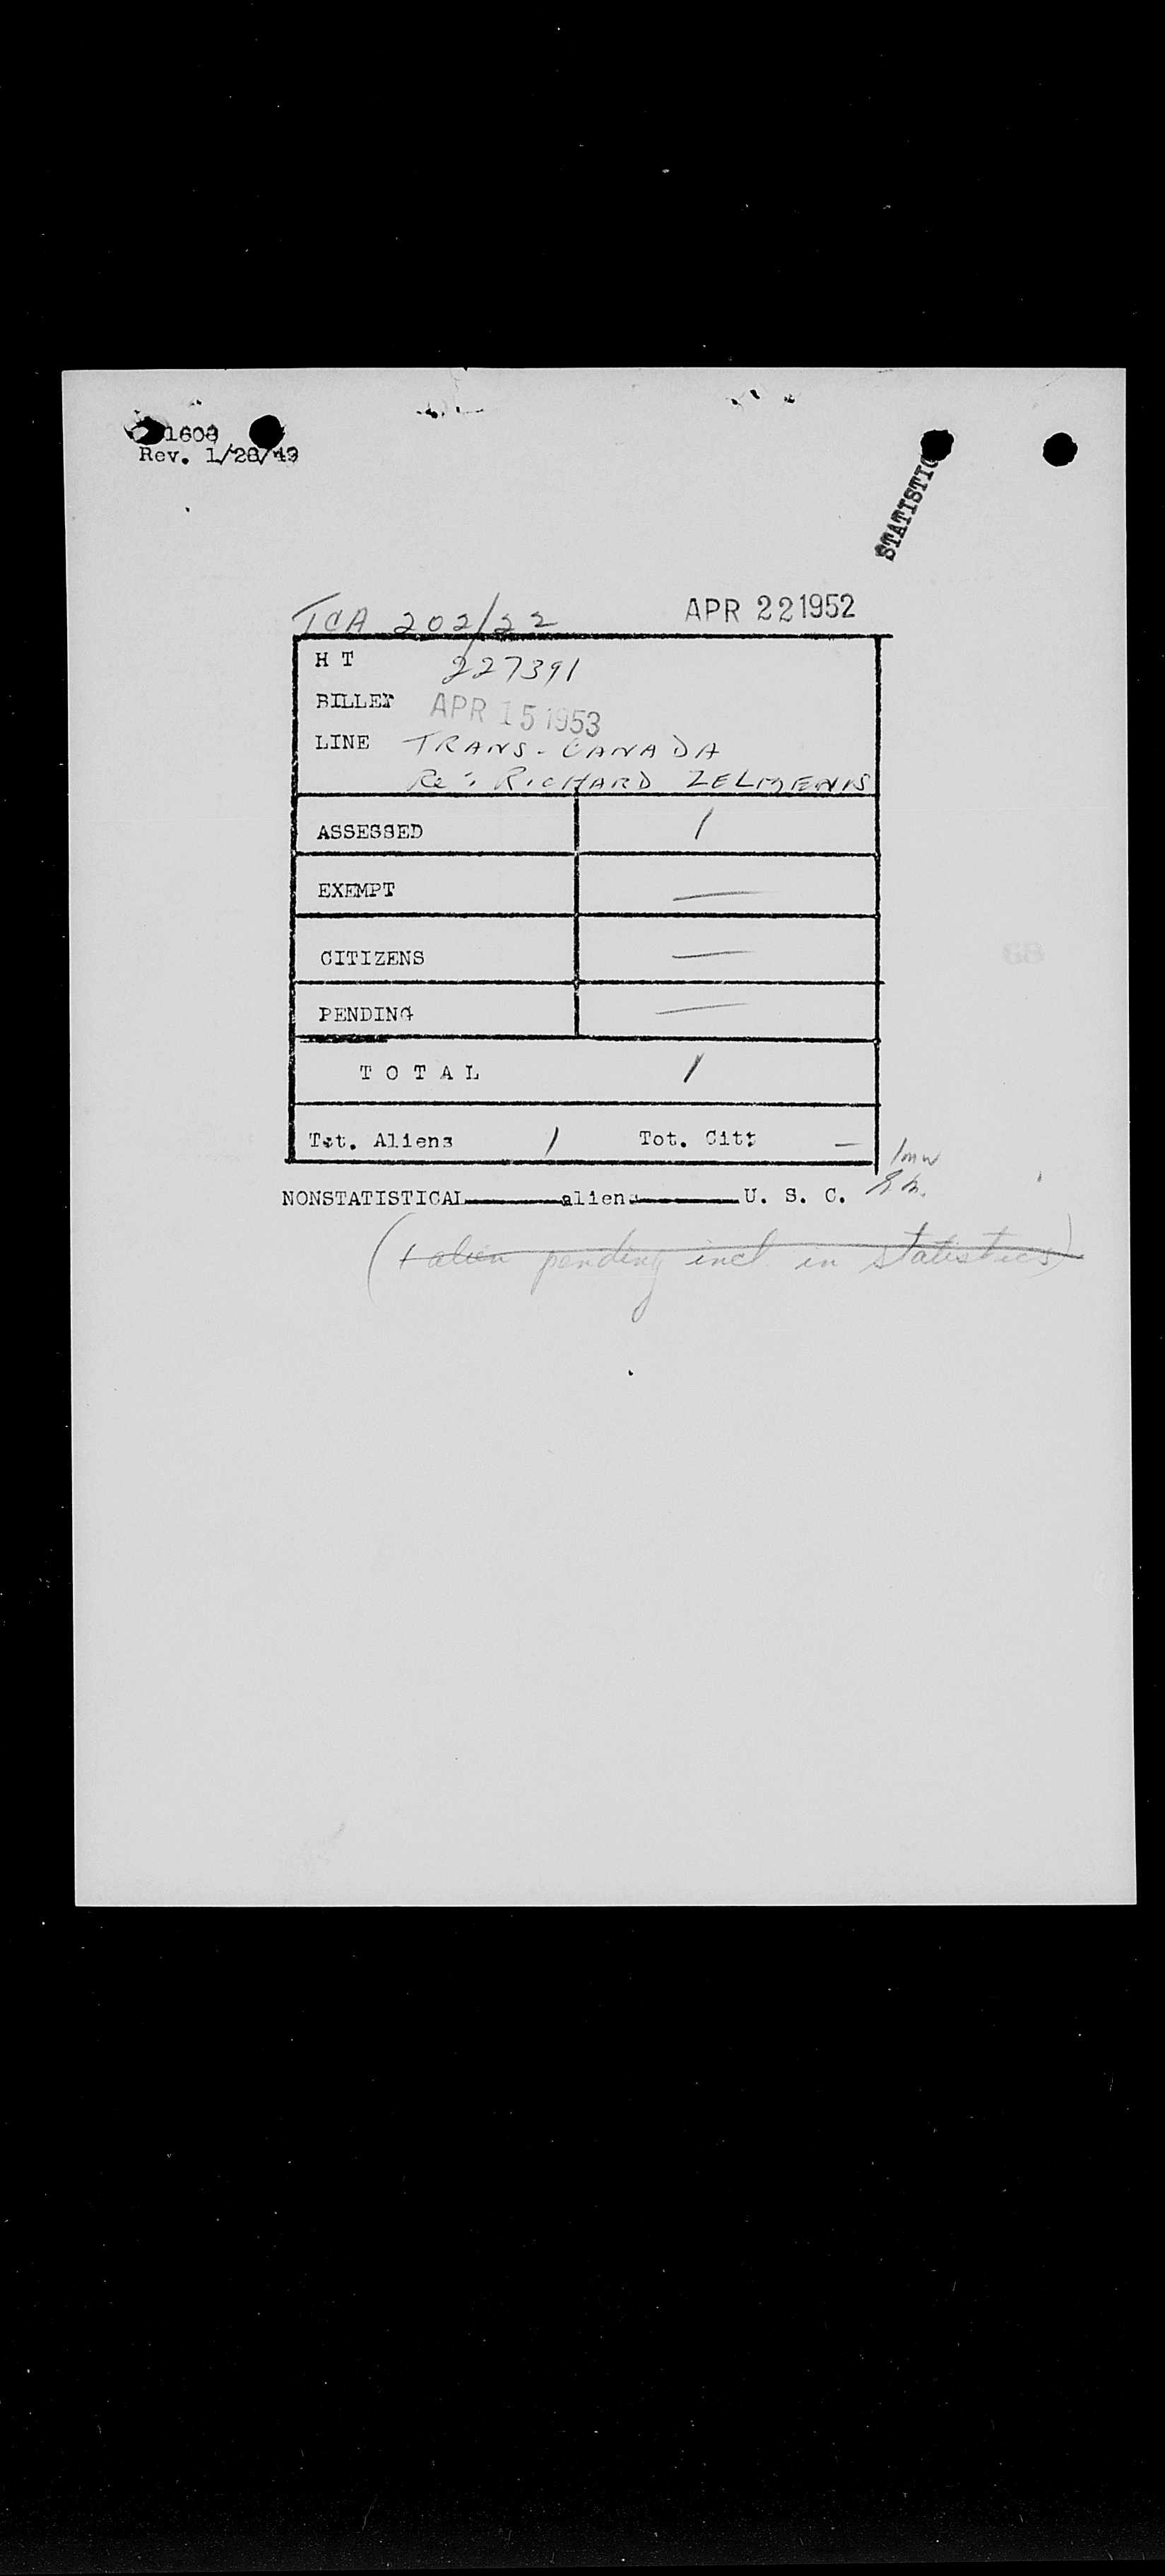 1608
Rev. 1/28/49
STATISTIC
TCA 202/22 APR 22 1952
H T 227391
BILLET APR 15 1953
LINE TRANS-CANADA
Re: RICHARD ZELMENIS
ASSESSED 1
EXEMPT —
CITIZENS —
PENDING —
T O T A L 1
Tot. Aliens 1 Tot. Citz —
1mw
NONSTATISTICAL aliens U. S. C.
(1 alien pending incl. in statistics)